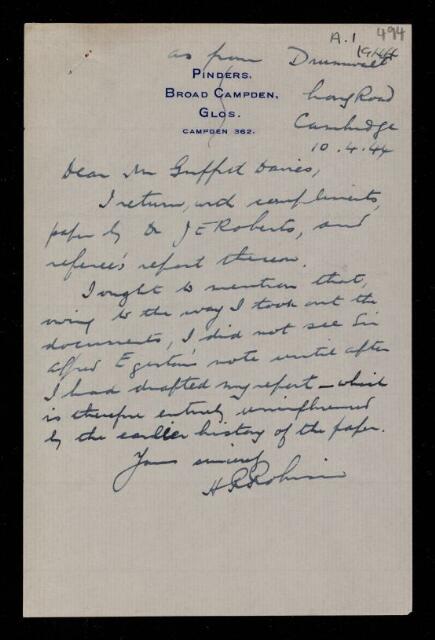 A.1 494
1944
as from Drumwalt
PINDERS,
BROAD CAMPDEN,
GLOS.
CAMPDEN 362.
Long Road
Cambridge
10.4.44
Dear Mr Griffith Davies,
I return, with compliments,
paper by Dr J E Roberts, and
referee's report thereon.
I ought to mention that,
owing to the way I took out the
documents, I did not see Sir
Alfred Egerton's note until after
I had drafted my report — which
is therefore entirely uninfluenced
by the earlier history of the paper.
Yours sincerely
H R Robinson